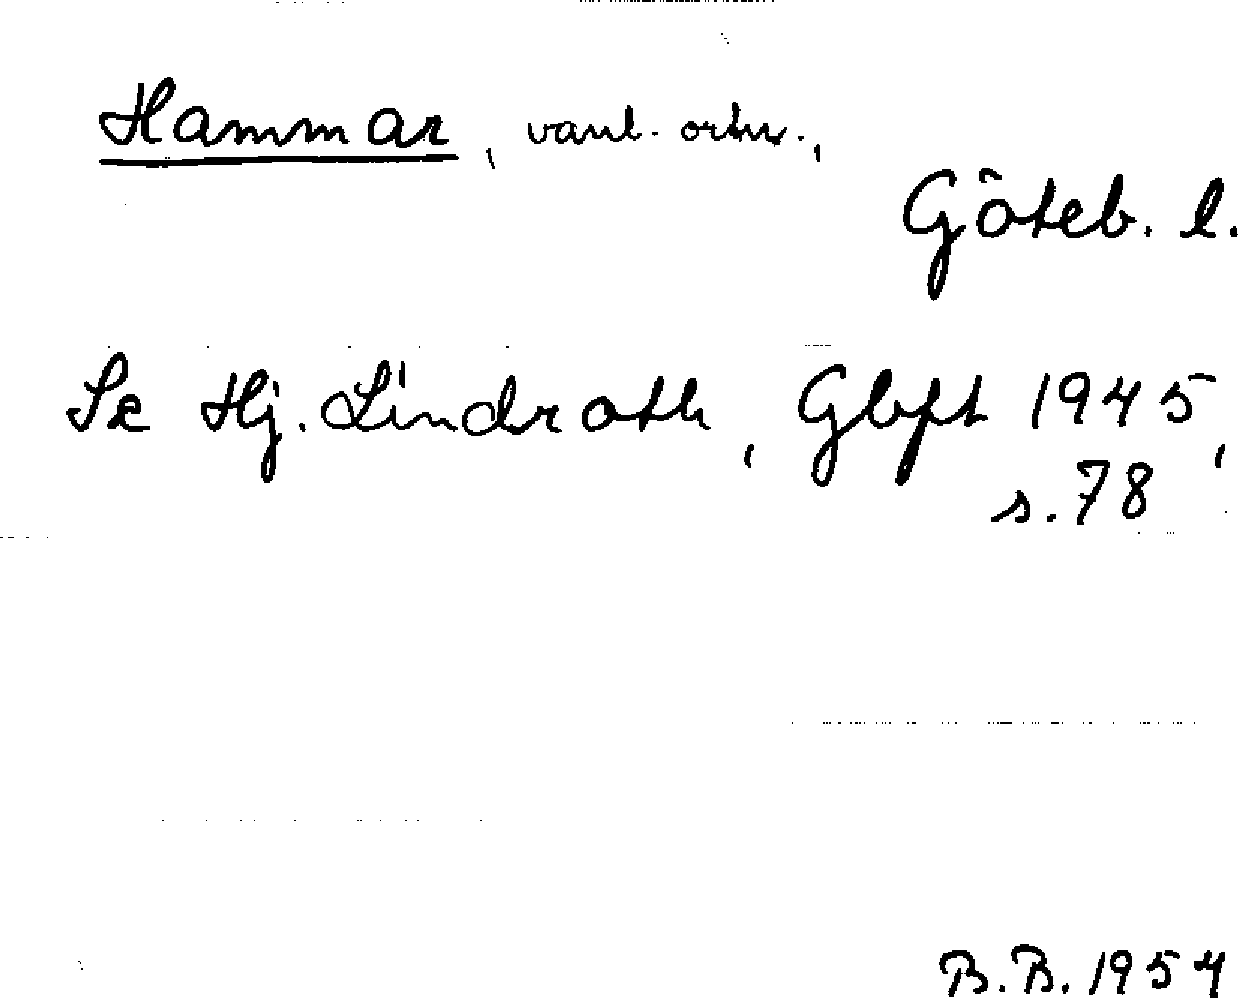 Hammar, vanl. ortn.,
Göteb. l.
Se Hj. Lindroth, Gbgft 1945,
s. 78
B.B. 1954